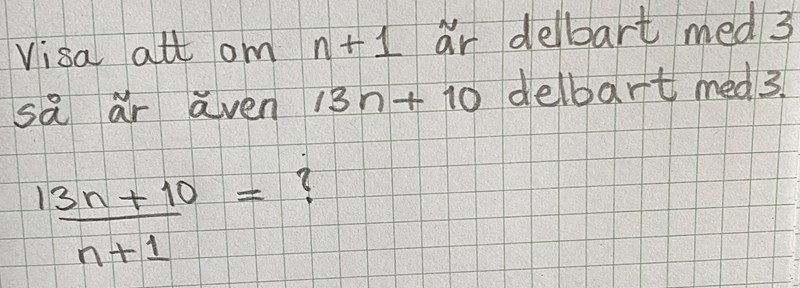 Visa att om n+1 är delbart med 3
så är även 13n+10 delbart med 3.
13n+10 = ?
n+1